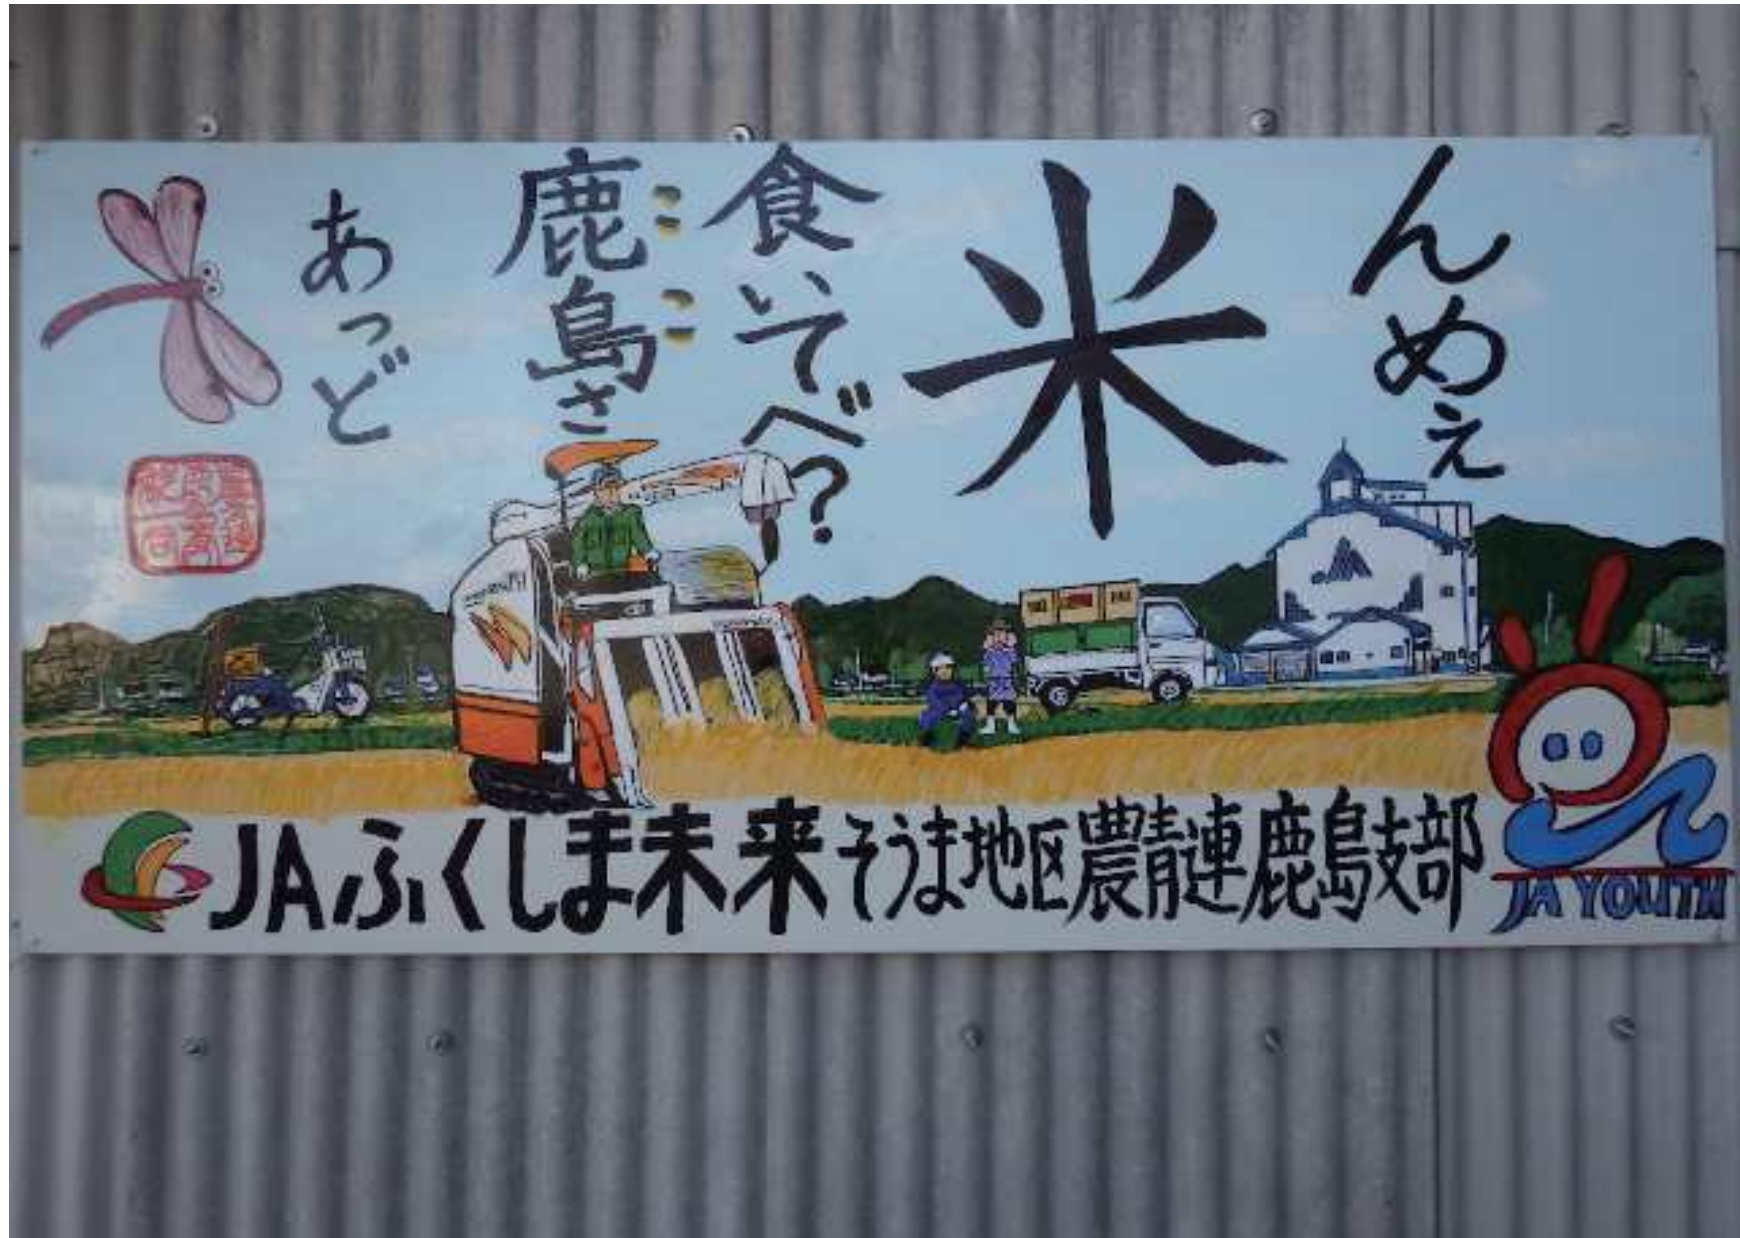 んめぇ
米
食いでべ?
鹿島さ
あっど
JAふくしま未来そうま地区農青連鹿島支部
JA YOUTH
JA